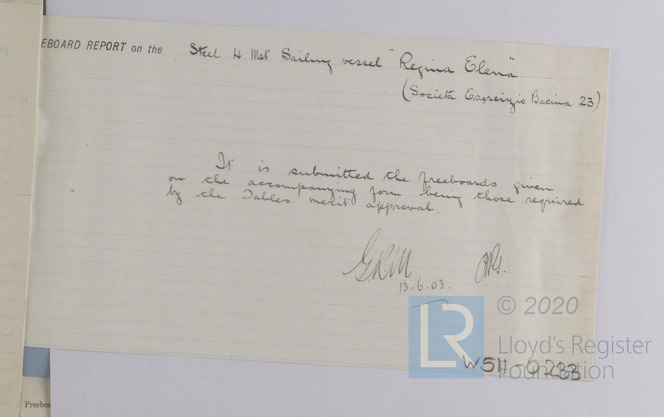 EBOARD REPORT on the Steel 4 Mst Sailing vessel "Regina Elena"
(Societá Esercizio Bacina 23)
It is submitted the freeboards given
on the accompanying form being those required
by the Tables merit approval.
G.R.M
13-6.03.
© 2020
LR
Lloyd's Register
Foundation
W511-0233
Freeboa